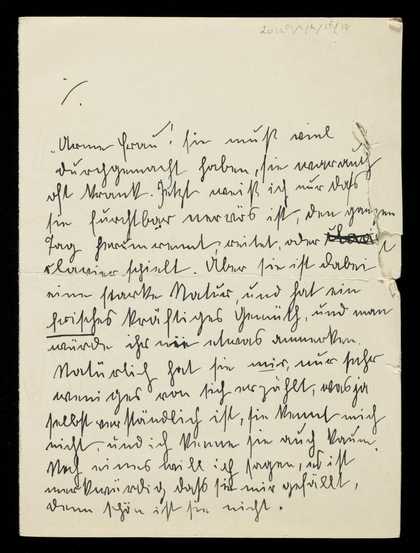 1.
„Arme Frau! sie muß viel
durchgemacht haben, sie war auch
oft krank. Jetzt weiß ich nur daß
sie furchtbar nervös ist, den ganzen
Tag herumrennt, reitet, oder
Klavier spielt. Aber sie ist dabei
eine starke Natur, und hat ein
frisches kräftiges Gemüth, und man
würde ihr nie etwas anmerken.
Natürlich hat sie mir, nur sehr
weniges von sich erzählt, was ja
selbst verständlich ist, sie kennt mich
nicht, und ich kenne sie auch kaum.
Noch eines will ich sagen, es ist
merkwürdig daß sie mir gefällt,
denn schön ist sie nicht.